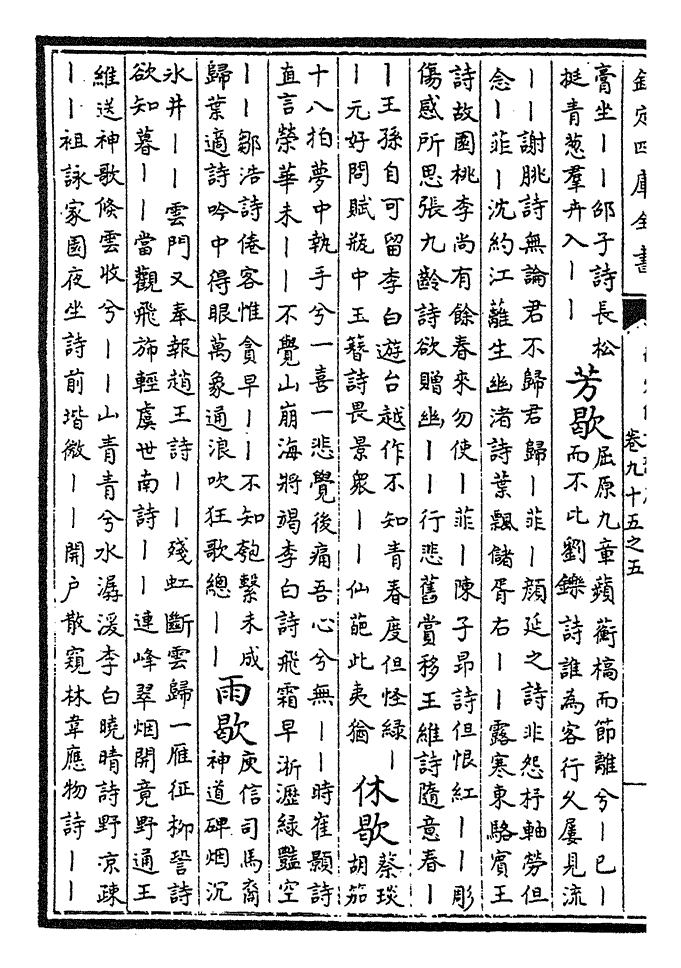 欽定四庫全書
卷九十五之五
膏坐丨丨邵子詩長松
挺青葱羣卉入丨丨
芳歇
屈原九章蘋蘅槁而節離兮丨已丨
而不比劉鑠詩誰為客行久屢見流
丨丨謝朓詩無論君不歸君歸丨菲丨顔延之詩非怨杼軸勞但
念丨菲丨沈約江蘺生幽渚詩葉飄儲胥右丨丨露寒東駱賓王
詩故園桃李尚有餘春來勿使丨菲丨陳子昻詩但恨紅丨丨彫
傷感所思張九齡詩欲贈幽丨丨行悲舊賞移王維詩隨意春丨
丨王孫自可留李白遊台越作不知青春度但怪緑丨
丨元好問賦瓶中玉簪詩畏景衆丨丨仙葩此夷猶
休歇
蔡琰
胡笳
十八拍夢中執手兮一喜一悲覺後痛吾心兮無丨丨時崔顥詩
直言榮華未丨丨不覺山崩海將竭李白詩飛霜早淅瀝緑豔空
丨丨鄒浩詩倦客惟貪早丨丨不知匏繫未成
歸葉適詩吟中得眼萬象通浪吹狂歌總丨丨
雨歇
庾信司馬裔
神道碑烟沉
氷井丨丨雲門又奉報趙王詩丨丨殘虹斷雲歸一雁征柳䛒詩
欲知暮丨丨當觀飛斾輕虞世南詩丨丨連峰翠烟開竟野通王
維送神歌倏雲收兮丨丨山青青兮水潺湲李白曉晴詩野凉疎
丨丨祖詠家園夜坐詩前堦微丨丨開户散窺林韋應物詩丨丨